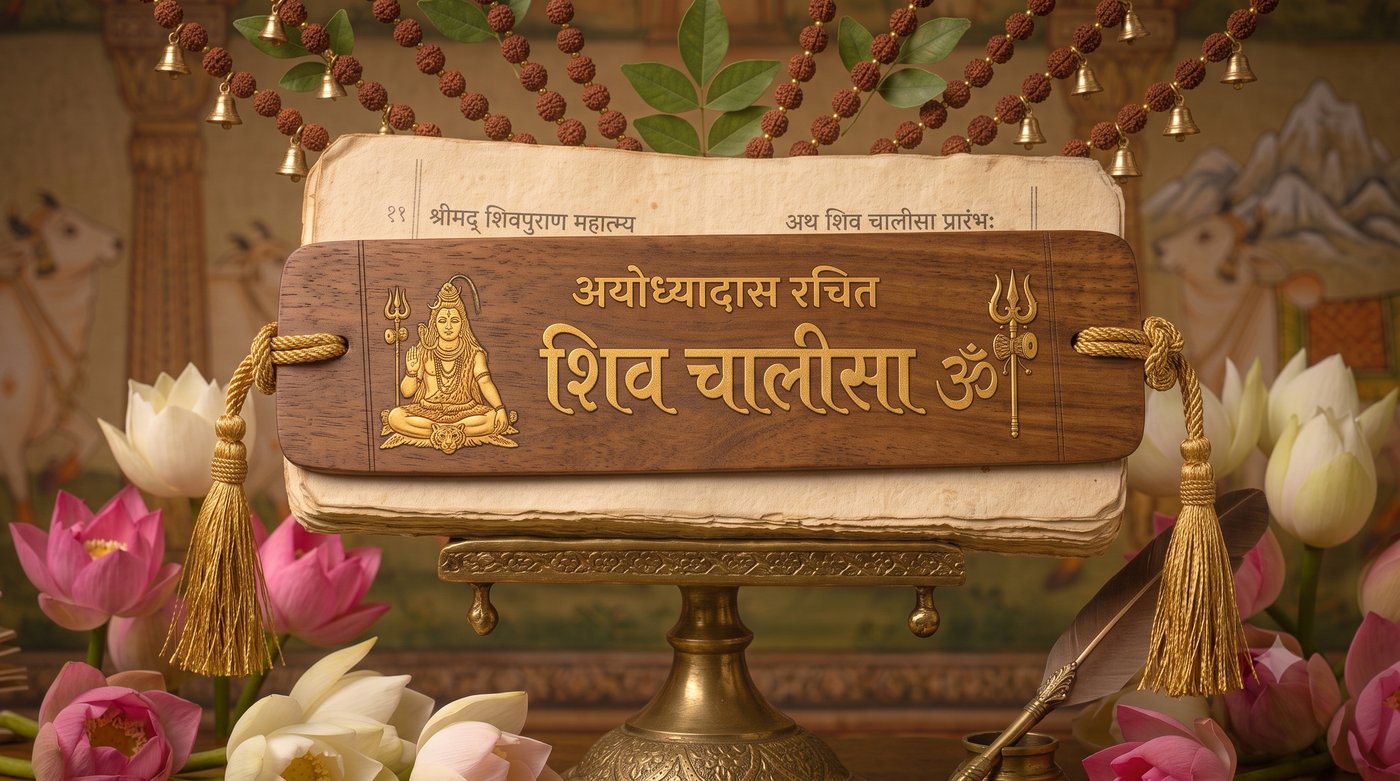 ११ श्रीमद् शिवपुराण महात्म्य अथ शिव चालीसा प्रारंभः
अयोध्यादास रचित
शिव चालीसा ॐ